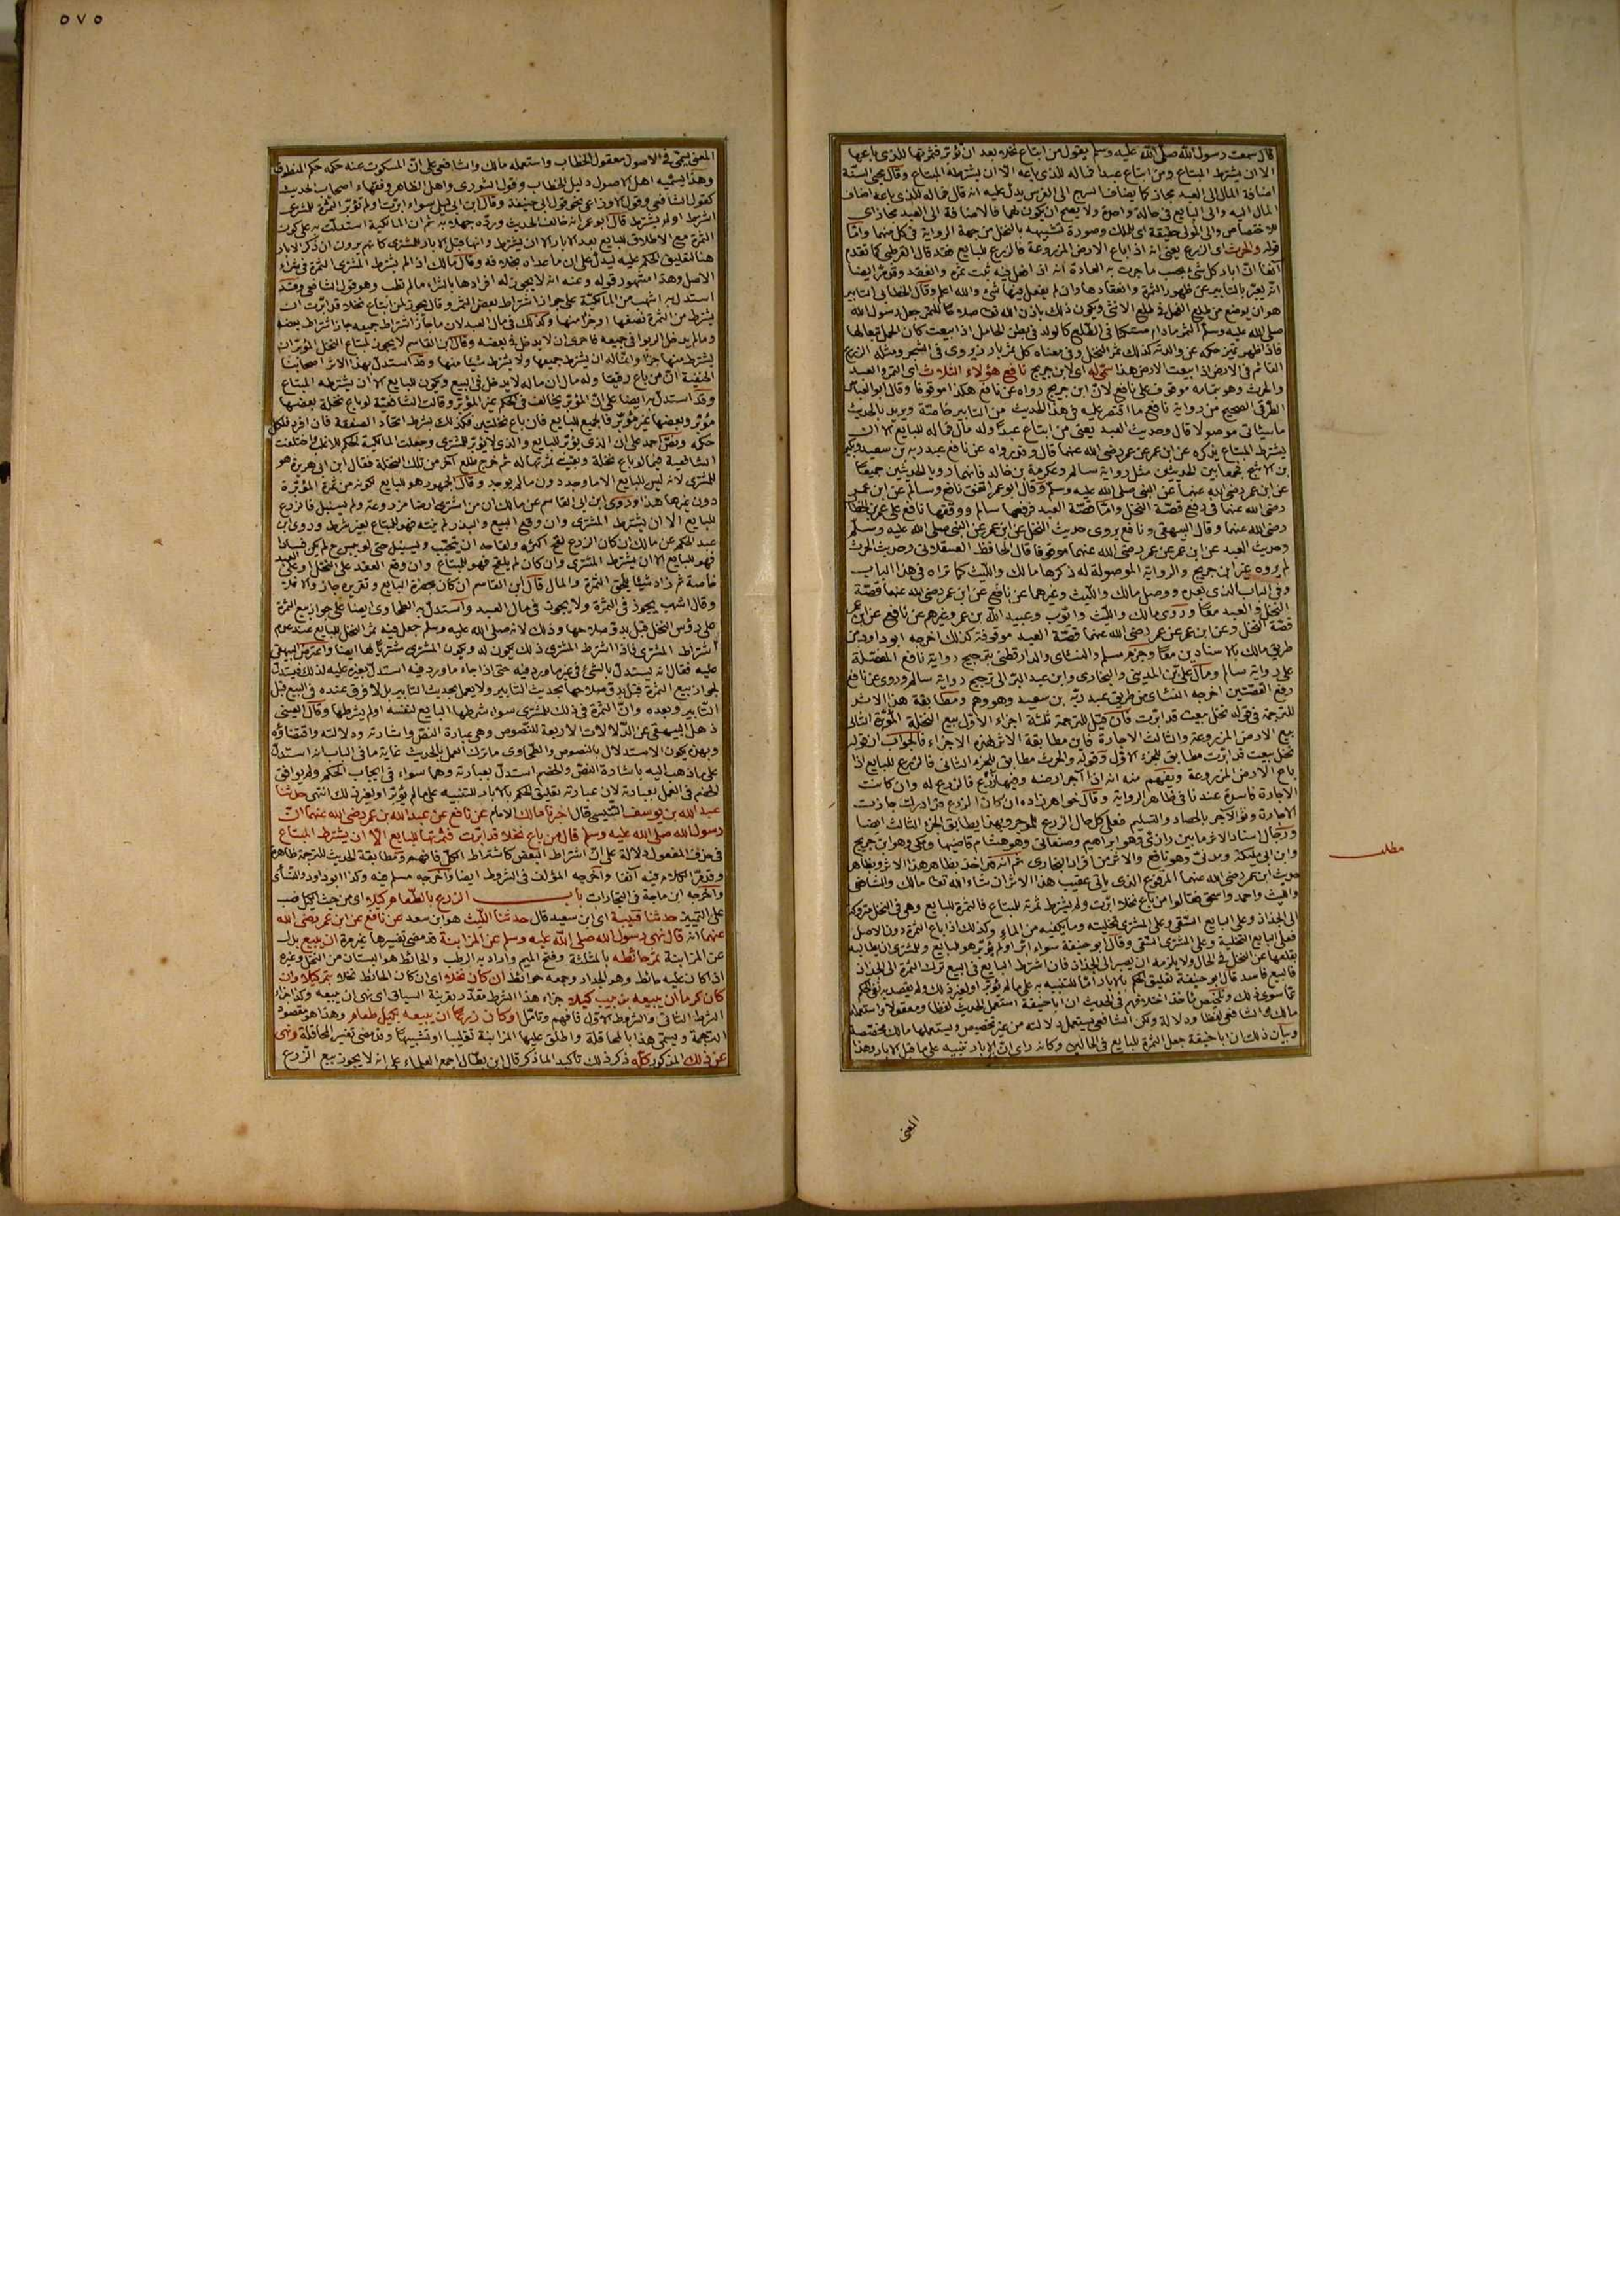 ٥٧٥
قال سمعت رسول الله صلى الله عليه وسلم يقول من ابتاع نخلا بعد ان تؤبر فثمرتها للذى باعها
الا ان يشترط المبتاع ومن ابتاع عبدا فماله للذى باعه الا ان يشترطه المبتاع وقال محيى السنة
اضافة المال الى العبد مجاز كما يضاف السرج الى الفرس يدل عليه انه قال فماله للذى باعه اضاف
المال اليه والى البايع فى حالة واحدة ولا يصح ان يكون لهما فالاضافة الى العبد مجاز اى
للاختصاص والى المولى حقيقة اى للملك وصورة تشبيهه بالنخل من جهة الرواية فى كل منهما واما
قوله والحرث اى الزرع يعنى انه اذا باع الارض المزروعة فالزرع للبايع فقد قال القرطبى كما تقدم
آنفا ان ابار كل شئ بحسب ما جرت به العادة انه اذا فعل فيه ثبت ثمره وانعقد وقد مر ايضا
انه يعبر بالتابير عن ظهور الثمرة وانعقادها وان لم يفعل فيها شئ والله اعلم وقال الخطابى التابير
هو ان يوضع من طلع الفحل فى طلع الانثى ويكون ذلك باذن الله تعالى صلاحا للثمر جعل رسول الله
صلى الله عليه وسلم الثمر ما دام مستكنا فى الطلع كالولد فى بطن الحامل اذا بيعت كان الحمل تبعا لها
فاذا ظهر تميز حكمه عن والدته كذلك ثمر النخل وفى معناه كل ثمر بارز يرى فى الشجر ومثله الزرع
القائم فى الارض اذا بيعت الارض هذا سمى له اى لابن جريج نافع هؤلاء الثلاث اى الثمر والعبد
والحرث وهو بتمامه موقوف على نافع لان ابن جريج رواه عن نافع هكذا موقوفا وقال ابو العباس
الطرقى الصحيح من رواية نافع ما اقتصر عليه فى هذا الحديث من التابير خاصة ويريد بالحديث
ما سيأتى موصولا قال وحديث العبد يعنى من ابتاع عبدا وله مال فماله للبايع الا ان
يشترط المبتاع يذكره عن ابن عمر عن عمر رضى الله عنهما قال وقد رواه عن نافع عبد ربه بن سعيد وبكير
بن الاشج فجمعا بين الحديثين مثل رواية سالم وعكرمة بن خالد فانهما رويا الحديثين جميعا
عن ابن عمر رضى الله عنهما عن النبى صلى الله عليه وسلم وقال ابو عمر اتفق نافع وسالم عن ابن عمر
رضى الله عنهما فى رفع قصة النخل واما قصة العبد فرفعها سالم ووقفها نافع على عمر بن الخطاب
رضى الله عنهما وقال البيهقى ونافع يروى حديث النخل عن ابن عمر عن النبى صلى الله عليه وسلم
وحديث العبد عن ابن عمر عن عمر رضى الله عنهما موقوفا قال الحافظ العسقلانى وحديث الحرث
لم يروه غير ابن جريج والرواية الموصولة له ذكرها مالك والليث كما تراه فى هذا الباب
وفى الباب الذى بعده ووصل مالك والليث وغيرهما عن نافع عن ابن عمر رضى الله عنهما قصة
النخل والعبد معا وروى مالك والليث وايوب وعبيد الله بن عمر وغيرهم عن نافع عن ابن عمر
قصة النخل وعن ابن عمر عن عمر رضى الله عنهما قصة العبد موقوفة كذلك اخرجه ابو داود من
طريق مالك بالاسنادين معا وجزم مسلم والنسائى والدارقطنى بترجيح رواية نافع المفصلة
على رواية سالم ومال على بن المدينى والبخارى وابن عبد البر الى ترجيح رواية سالم وروى عن نافع
رفع القصتين اخرجه النسائى من طريق عبد ربه بن سعيد وهو وهم ومطابقة هذا الاثر
للترجمة فى قوله نخل بيعت قد ابرت فان قيل للترجمة ثلثة اجزاء الاول بيع النخلة المؤبرة الثانى
بيع الارض المزروعة والثالث الاجارة فاين مطابقة الاثر لهذه الاجزاء فالجواب ان قوله
نخل بيعت قد ابرت مطابق للجزء الاول وقوله والحرث مطابق للجزء الثانى فالزرع للبايع اذا
باع الارض المزروعة ويفهم منه انه اذا آجر ارضه وفيها زرع فالزرع له وان كانت
الاجارة فاسدة عندنا فى ظاهر الرواية وقال خواهر زاده ان كان الزرع قد ادرك جازت
الاجارة ويؤمر الآجر بالحصاد والتسليم فعلى كل حال الزرع للموجر وبهذا يطابق الجزء الثالث ايضا
ورجال اسناد الاثر ما بين رازى وهو ابراهيم وصنعانى وهو هشام قاضيها ومكى وهو ابن جريج
وابن ابى مليكة ومدنى وهو نافع والاثر من افراد البخارى ثم انه قد اخذ بظاهر هذا الاثر وبظاهر
حديث ابن عمر رضى الله عنهما المرفوع الذى ياتى عقيب هذا الاثر ان شاء الله تعالى مالك والشافعى
والليث واحمد واسحق فقالوا من باع نخلا قد ابرت ولم يشترط ثمرته المبتاع فالثمرة للبايع وهى فى النخل متروكة
الى الجذاذ وعلى البايع السقى وعلى المشترى تخليته وما يكفيه من الماء وكذلك اذا باع الثمرة دون الاصل
فعلى البايع التخلية وعلى المشترى السقى وقال ابو حنيفة سواء ابر او لم يؤبر هو للبايع وللمشترى ان يطالبه
بقلعها عن النخل فى الحال ولا يلزمه ان يصبر الى الجذاذ فان اشترط البايع فى البيع ترك الثمرة الى الجذاذ
فالبيع فاسد قال ابو حنيفة تعليق الحكم بالابار اما للتنبيه به على ما لم يؤبر او لغير ذلك ولم يقصد به نفى الحكم
عما سوى ذلك وتلخيص مأخذ اختلافهم فى الحديث ان ابا حنيفة استعمل الحديث لفظا ومعقولا واستعمله
مالك والشافعى لفظا ودلالة ولكن الشافعى يستعمل دلالته من غير تخصيص ويستعملها مالك مخصصة
وبيان ذلك ان ابا حنيفة جعل الثمرة للبايع فى الحالين وكانه رأى ان الابار تنبيه على ما قبل الابار وهذا
مطلب
المعنى
المعنى يسمى فى الاصول معقول الخطاب واستعمله مالك والشافعى على ان المسكوت عنه حكمه حكم المنطوق
وهذا يسميه اهل الاصول دليل الخطاب وقول الثورى واهل الظاهر وفقهاء اصحاب الحديث
كقول الشافعى وقول الاوزاعى نحو قول ابى حنيفة وقال ابن ابى ليلى سواء ابرت او لم تؤبر الثمرة للمشترى
اشترط او لم يشترط قال ابو عمر انه خالف الحديث ورده جهلا به ثم ان المالكية استدلت به على كون
الثمرة مع الاطلاق للبايع بعد الابار الا ان يشترط وانها قبل الابار للمشترى كانهم يرون ان ذكر الابار
هنا لتعليق الحكم عليه ليدل على ان ما عداه بخلافه وقال مالك اذا لم يشترط المشترى الثمرة فى شراء
الاصل وهذا مشهور قوله وعنه انه لا يجوز له افرادها بالشراء ما لم تطب وهو قول الشافعى وقد
استدل به اشهب من المالكية على جواز اشتراط بعض الثمر وقال يجوز لمن ابتاع نخلا قد ابرت ان
يشترط من الثمرة نصفها او جزأ منها وكذلك فى مال العبد لان ما جاز اشتراط جميعه جاز اشتراط بعضه
وما لم يدخل الربوا فى جميعه فاحرى ان لا يدخل فى بعضه وقال ابن القاسم لا يجوز لمبتاع النخل المؤبر ان
يشترط منها جزأ وانما له ان يشترط جميعها ولا يشترط شيئا منها وقد استدل بهذا الاثر اصحابنا
الحنفية ان من باع رقيقا وله مال ان ماله لا يدخل فى البيع ويكون للبايع الا ان يشترطه المبتاع
وقد استدل به ايضا على ان المؤبر يخالف فى الحكم غير المؤبر وقالت الشافعية لو باع نخلة بعضها
مؤبر وبعضها غير مؤبر فالجميع للبايع فان باع نخلتين فكذلك بشرط اتحاد الصفقة فان افرد فلكل
حكمه ونص احمد على ان الذى يؤبر للبايع والذى لا يؤبر للمشترى وجعلت المالكية الحكم للاغلب واختلفت
الشافعية فيما لو باع نخلة وبقيت ثمرتها له ثم خرج طلع آخر من تلك النخلة فقال ابن ابى هريرة هو
للمشترى لانه ليس للبايع الا ما وجد دون ما لم يوجد وقال الجمهور هو للبايع لكونه من ثمرة المؤبرة
دون غيرها هذا وروى ابن القاسم عن مالك ان من اشترى ارضا مزروعة ولم يسنبل فالزرع
للبايع الا ان يشترطه المشترى وان وقع البيع والبذر لم ينبت فهو للمبتاع بغير شرط وروى ابن
عبد الحكم عن مالك ان كان الزرع لقح اكثره ولقاحه ان يتحبب ويسنبل حتى لو يبس ح لم يكن فسادا
فهو للبايع الا ان يشترط المشترى وان كان لم يلقح فهو للمبتاع وان وقع العقد على النخل او على العبد
خاصة ثم زاد شيئا يلحق الثمرة والمال قال ابن القاسم ان كان بحضرة البايع وتقريره جاز والا فلا
وقال اشهب يجوز فى الثمرة ولا يجوز فى مال العبد واستدل به الطحاوى ايضا على جواز بيع الثمرة
على رؤس النخل قبل بدو صلاحها وذلك لانه صلى الله عليه وسلم جعل فيه ثمر النخل للبايع عند عدم
اشتراط المشترى فاذا اشترط المشترى ذلك يكون له ويكون المشترى مشتريا لها ايضا واعترض البيهقى
عليه فقال انه يستدل بالشئ فى غير ما ورد فيه حتى اذا جاء ما ورد فيه استدل بغيره عليه كذلك فيستدل
لجواز بيع الثمرة قبل بدو صلاحها بحديث التابير ولا يعمل بحديث التابير بل لا فرق عنده فى البيع قبل
التابير وبعده وان الثمرة فى ذلك للمشترى سواء شرطها البايع لنفسه او لم يشرطها وقال العينى
ذهل البيهقى عن الدلالات الاربعة للنصوص وهى عبارة النص واشارته ودلالته واقتضاؤه
وبهذه يكون الاستدلال بالنصوص والطحاوى ما ترك العمل بالحديث غاية ما فى الباب انه استدل
على ما ذهب اليه باشارة النص والخصم استدل بعبارته وهما سواء فى ايجاب الحكم ولم يوافق
الخصم فى العمل بعبارته لان عبارته تعليق الحكم بالابار للتنبيه على ما لم يؤبر او لغير ذلك انتهى حدثنا
عبد الله بن يوسف التنيسى قال اخبرنا مالك الامام عن نافع عن عبد الله بن عمر رضى الله عنهما ان
رسول الله صلى الله عليه وسلم قال من باع نخلا قد ابرت فثمرتها للبايع الا ان يشترط المبتاع
فى حذف المفعول دلالة على ان اشتراط البعض كاشتراط الكل فافهم ومطابقة الحديث للترجمة ظاهرة
وقد مر الكلام فيه آنفا واخرجه المؤلف فى الشروط ايضا واخرجه مسلم فيه وكذا ابو داود والنسائى
واخرجه ابن ماجة فى التجارات باب الزرع بالطعام كيلا اى من حيث الكيل نصب
على التمييز حدثنا قتيبة اى ابن سعيد قال حدثنا الليث هو ابن سعد عن نافع عن ابن عمر رضى الله
عنهما انه قال نهى رسول الله صلى الله عليه وسلم عن المزابنة قد مضى تفسيرها غير مرة ان يبيع بدل
عن المزابنة ثمر حائطه بالمثلثة وفتح الميم واراد به الرطب والحائط هو البستان من النخل وغيره
اذا كان عليه حائط وهو الجدار وجمعه حوائط ان كان نخلا اى ان كان الحائط نخلا بتمر كيلا وان
كان كرما ان يبيعه بزبيب كيلا جزاء هذا الشرط مقدر بقرينة السياق اى نهى ان يبيعه وكذا جزاء
الشرط الثانى والشروط الاول فافهم وتامل او كان زرعا ان يبيعه بكيل طعام وهذا هو مقصود
الترجمة ويسمى هذا بالمحاقلة واطلق عليها المزابنة تغليبا او تشبيها وقد مضى تفسير المحاقلة ونهى
عن ذلك المذكور كله ذكر ذلك تاكيدا لما ذكر قال ابن بطال اجمع العلماء على انه لا يجوز بيع الزرع